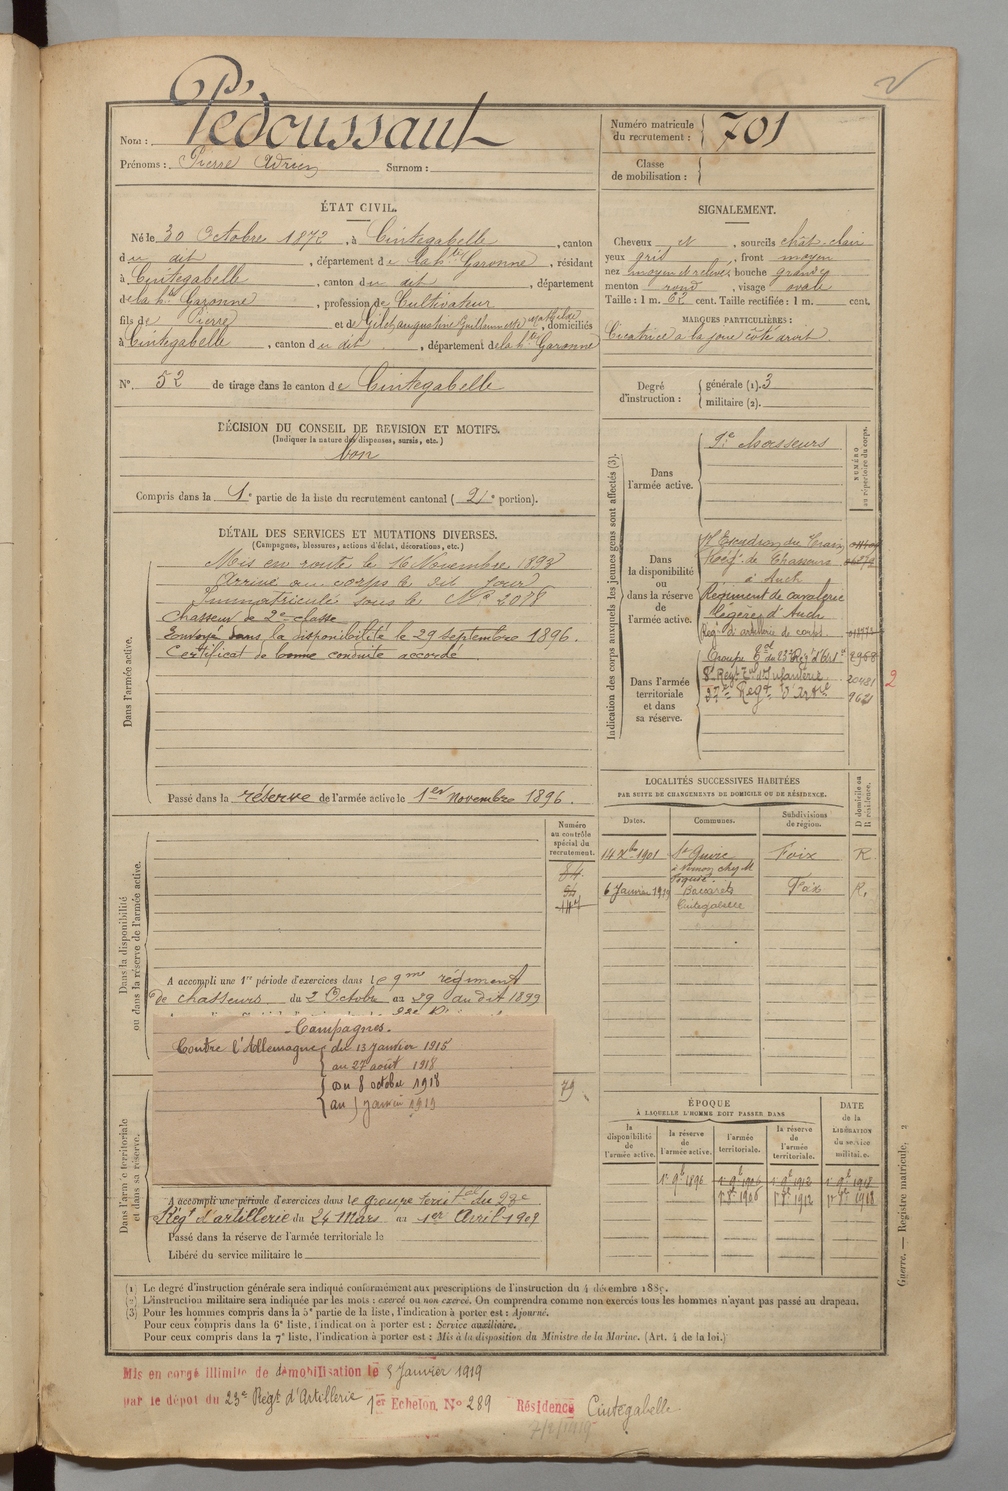 Nom : Pédoussaut
Prénoms : Pierre Adrien Surnom :
Numéro matricule du recrutement : 701
Classe de mobilisation :
ÉTAT CIVIL.
Né le 30 Octobre 1872, à Cintegabelle, canton
du dit, département de la hte Garonne, résidant
à Cintegabelle, canton du dit, département
de la hte Garonne, profession de Cultivateur
fils de Pierre et de Gilet augustine Guillaumette Mathilde, domiciliés
à Cintegabelle, canton du dit, département de la hte Garonne
N° 52 de tirage dans le canton de Cintegabelle
DÉCISION DU CONSEIL DE REVISION ET MOTIFS.
(Indiquer la nature des dispenses, sursis, etc.)
bon
Compris dans la 1e partie de la liste du recrutement cantonal (2e portion).
DÉTAIL DES SERVICES ET MUTATIONS DIVERSES.
(Campagnes, blessures, actions d'éclat, décorations, etc.)
Dans l'armée active.
Mis en route le 16 Novembre 1893
Arrivé au corps le dit jour
Immatriculé sous le N° 2078
Chasseur de 2e classe
Envoyé dans la disponibilité le 29 septembre 1896.
Certificat de bonne conduite accordé
Passé dans la réserve de l'armée active le 1er novembre 1896.
Dans la disponibilité ou dans la réserve de l'armée active.
Numéro au contrôle spécial du recrutement.
84
A accompli une 1re période d'exercices dans le 9me régiment
de chasseurs du 2 Octobre au 29 au dit 1899
- Campagnes -
Contre l'Allemagne du 13 janvier 1915
au 27 août 1918
Du 8 octobre 1918
au janvier 1919
79
Dans l'armée territoriale et dans sa réserve.
A accompli une période d'exercices dans le groupe territal du 23e
Régt d'artillerie du 24 Mars au 1er Avril 1909
Passé dans la réserve de l'armée territoriale le
Libéré du service militaire le
SIGNALEMENT.
Cheveux et, sourcils chât. clair
yeux gris, front moyen
nez moyen relevé, bouche grande
menton rond, visage ovale
Taille : 1 m. 62 cent. Taille rectifiée : 1 m. cent.
MARQUES PARTICULIÈRES :
Cicatrice à la joue côté droit.
Degré d'instruction : générale (1). 3
militaire (2).
Indication des corps auxquels les jeunes gens sont affectés (3).
NUMÉRO au répertoire du corps.
Dans l'armée active.
9e Chasseurs
Dans la disponibilité ou dans la réserve de l'armée active.
Escadron du Train
Régt de Chasseurs
à Auch
Régiment de cavalerie
légère d'Auch
Régt d'artillerie de corps
Dans l'armée territoriale et dans sa réserve.
Groupe tal du 23e Régt d'Art. 2968
8e Régt Tal d'Infanterie
Regt d'Artie
2
LOCALITÉS SUCCESSIVES HABITÉES
PAR SUITE DE CHANGEMENTS DE DOMICILE OU DE RÉSIDENCE.
Dates. Communes. Subdivisions de région. D domicile ou R résidence.
14 Xbre 1901 Foix R
6 Janvier 1919 Baccarets Cintegabelle Foix R.
ÉPOQUE
À LAQUELLE L'HOMME DOIT PASSER DANS
la disponibilité de l'armée active. la réserve de l'armée active. l'armée territoriale. la réserve de l'armée territoriale. DATE de la LIBÉRATION du service militaire.
1er 9bre 1896 1er 9bre 1906 1er 9bre 1912 1er 9bre 1918
1er 8bre 1906 1er 8bre 1912 1er 8bre 1918
(1) Le degré d'instruction générale sera indiqué conformément aux prescriptions de l'instruction du 4 décembre 1889.
(2) L'instruction militaire sera indiquée par les mots : exercé ou non exercé. On comprendra comme non exercés tous les hommes n'ayant pas passé au drapeau.
(3) Pour les hommes compris dans la 5e partie de la liste, l'indication à porter est : Ajourné.
Pour ceux compris dans la 6e liste, l'indication à porter est : Service auxiliaire.
Pour ceux compris dans la 7e liste, l'indication à porter est : Mis à la disposition du Ministre de la Marine. (Art. 4 de la loi.)
Guerre. — Registre matricule, 2
Mis en congé illimité de démobilisation le 8 Janvier 1919
par le dépôt du 23e Régt d'Artillerie 1er Echelon, N° 289 Résidence Cintegabelle